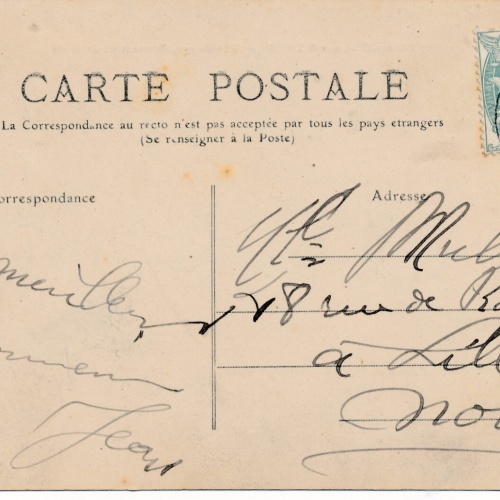 CARTE POSTALE
La Correspondance au recto n'est pas acceptée par tous les pays etrangers
(Se renseigner à la Poste)
orrespondance
Adresse
Mlle Mul
28 rue de
à Lill
Nor
Jean